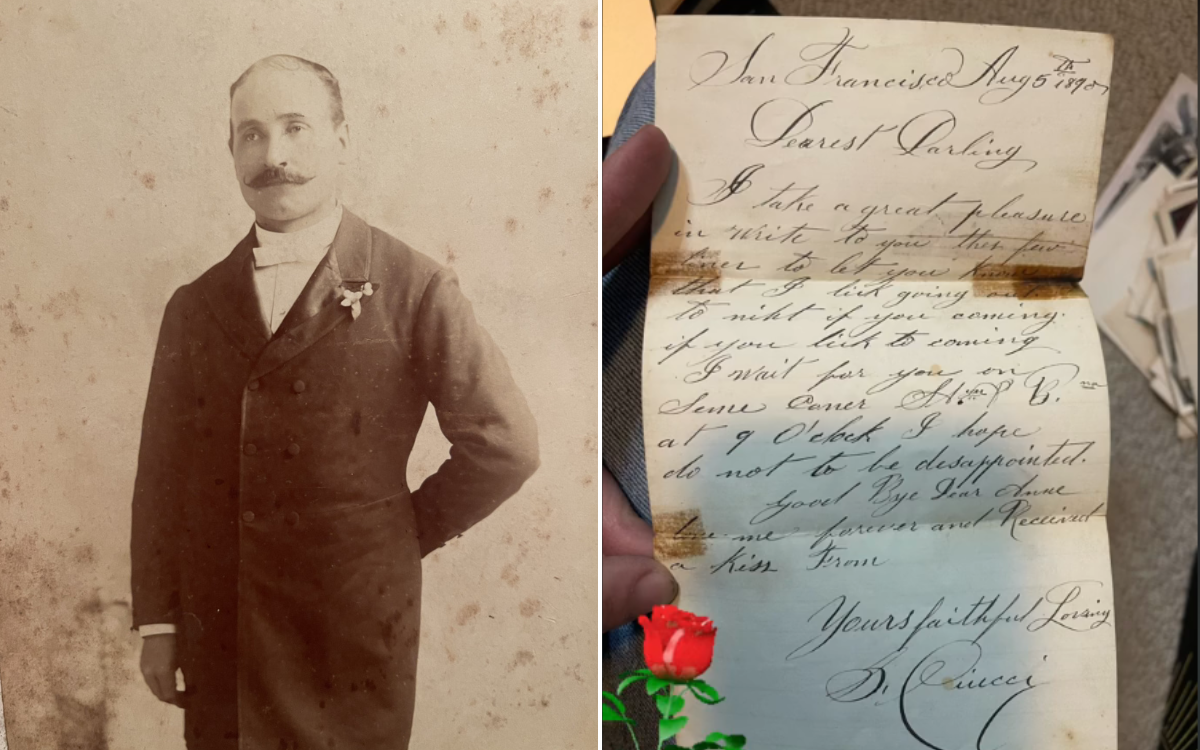 San Francisco Aug 5th 1890
Dearest Darling
I take a great pleasure
in write to you ther few
liner to let you know
that I lick going out
to niht if you coming.
if you lick to coming
I wait for you on
Seme Coner St.
at 9 O'clock I hope
do not to be desappointed.
Good Bye Dear Anne
love me forever and Received
a Kiss From
Yours faithful Loving
D. Ciucci